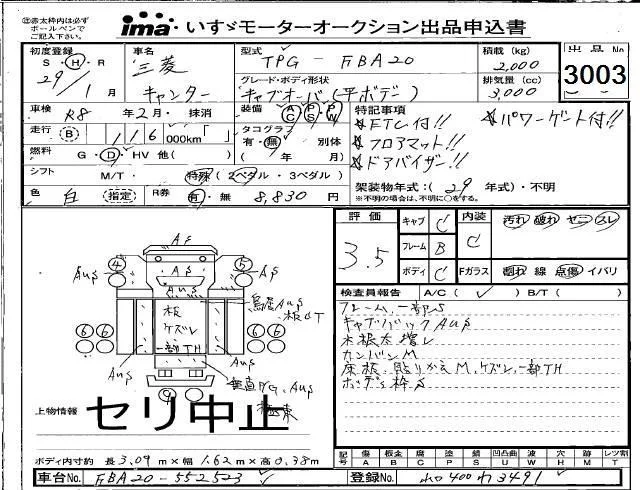 ㊟赤太枠内は必ず
ボールペンで
ご記入下さい。
ima いすゞモーターオークション出品申込書
初度登録 S・H・R 29年 1月
車名 三菱 キャンター
型式 TPG - FBA20
グレード・ボディ形状 キャブオーバ(平ボデー)
積載 (kg) 2,000
排気量 (cc) 3,000
出品No 3003
車検 R8年 2月・抹消
装備 AC PS PW
走行 (B) 116,000km「 」
タコグラフ 有・無 別体 ( 年 月)
燃料 G・D・HV 他( )
シフト M/T・ 特殊(2ペダル・3ペダル)
色 白 (指定)
R券 有・無 8,830円
特記事項
★ETC付!! ★パワーゲート付!!
★フロアマット!!
★ドアバイザー!!
架装物年式:( 29 年式)・不明
※不明の場合は、不明に○をする。
評価 3.5
キャブ C
フレーム B
ボディ C
内装 C
汚れ 破れ ヤニ スレ
Fガラス 割れ 線 点傷 イバリ
検査員報告 A/C ( ✓ ) B/T ( )
フレーム、一部S
キャブバックAuS
木根太増し
カンバンM
床板、貼りかえM、ケズレ、一部TH
ボデS枠S
AF
④ ⑤
AuS AS AS
AuS
鳥居AuS
板CT
板
ケズレ
一部TH
⑥⑥ ⑥⑥
垂直PG、AuS
極東
上物情報
セリ中止
ボディ内寸約 長3.09m×幅1.62m×高0.38m
記号 傷A 板金B 腐C 塗P 錆S 凹凸曲U 波W 穴H 跡M 破T レツ割
車台No. FBA20-552523
登録No. 400 3491